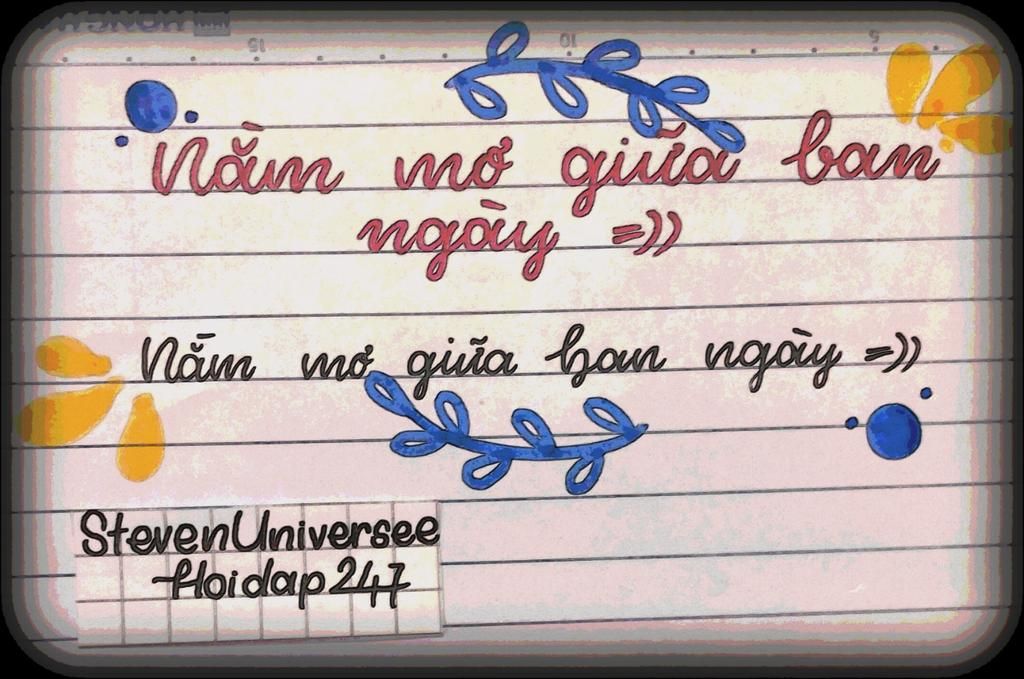 Nằm mơ giữa ban
ngày =))
Nằm mơ giữa ban ngày =))
StevenUniversee
Hoidap247